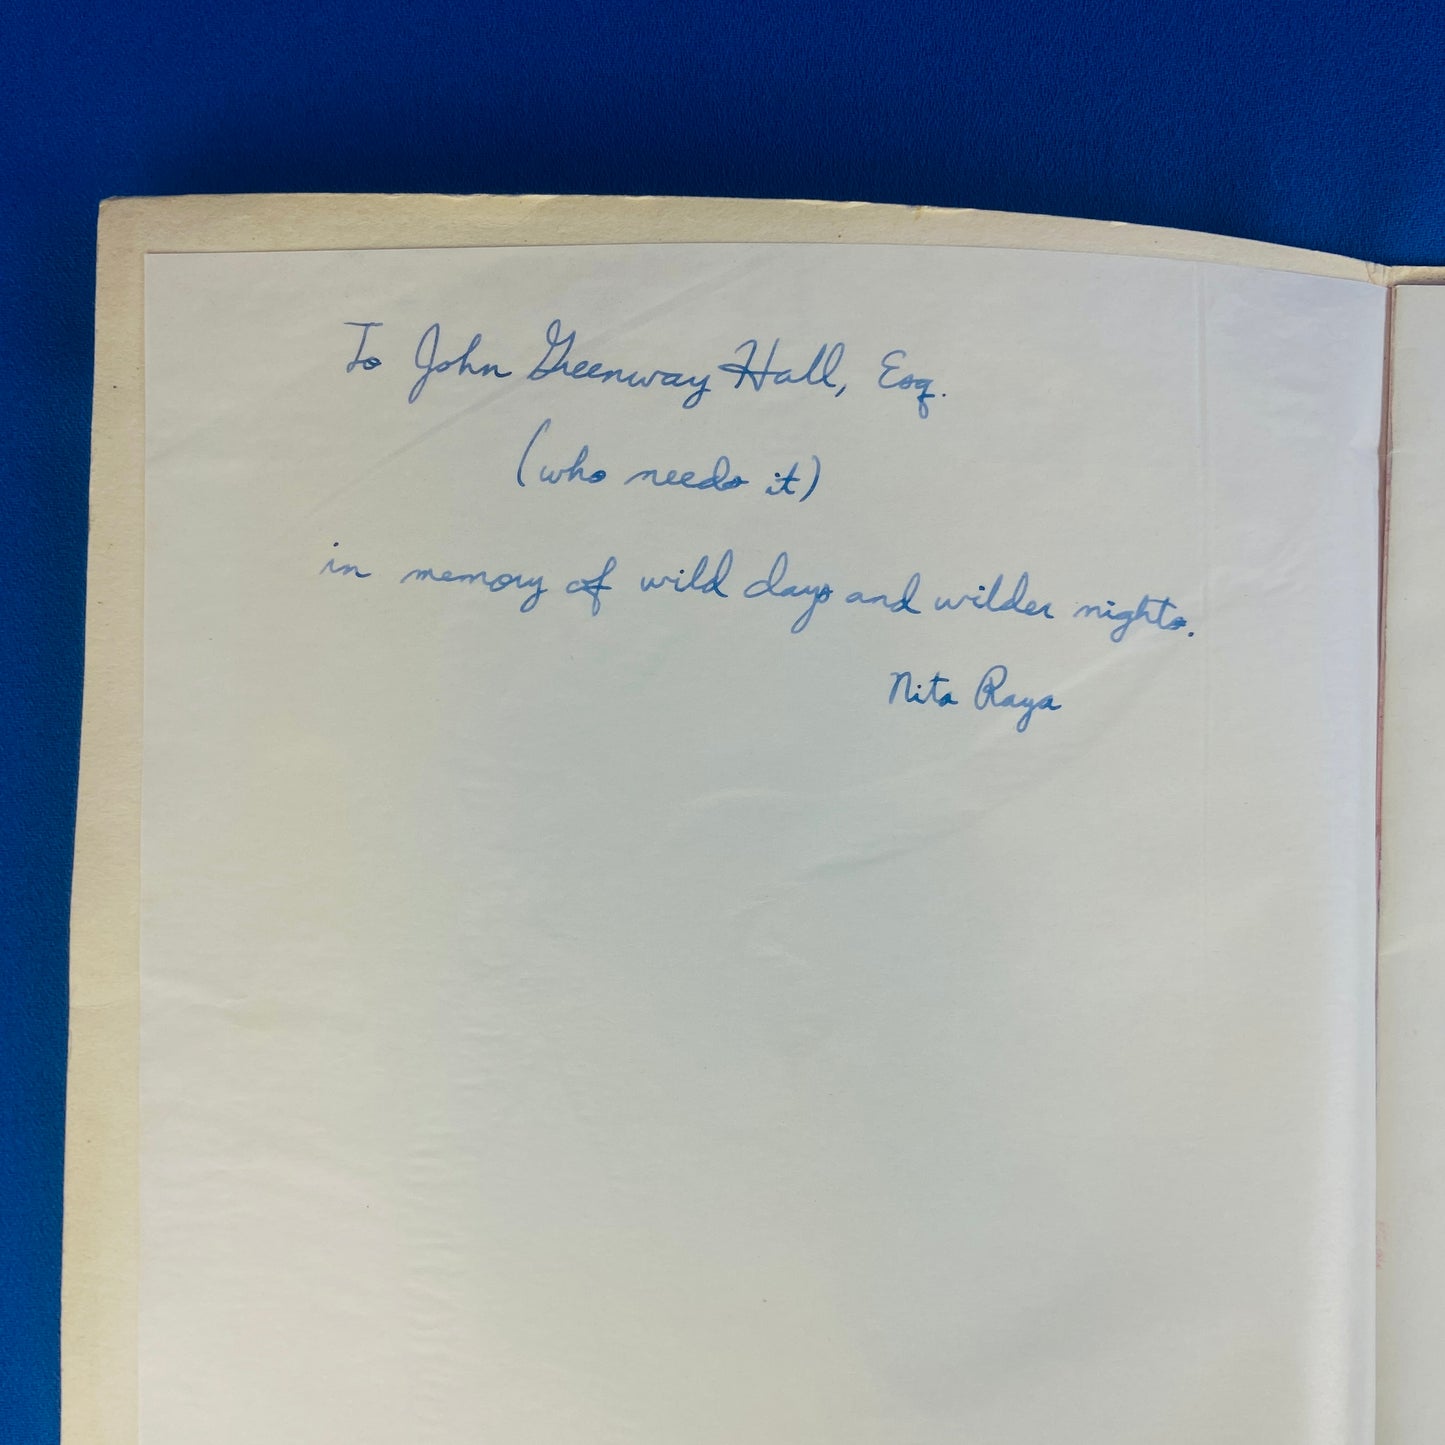 To John Greenway Hall, Esq.
(who needs it)
in memory of wild days and wilder nights.
Nita Raya